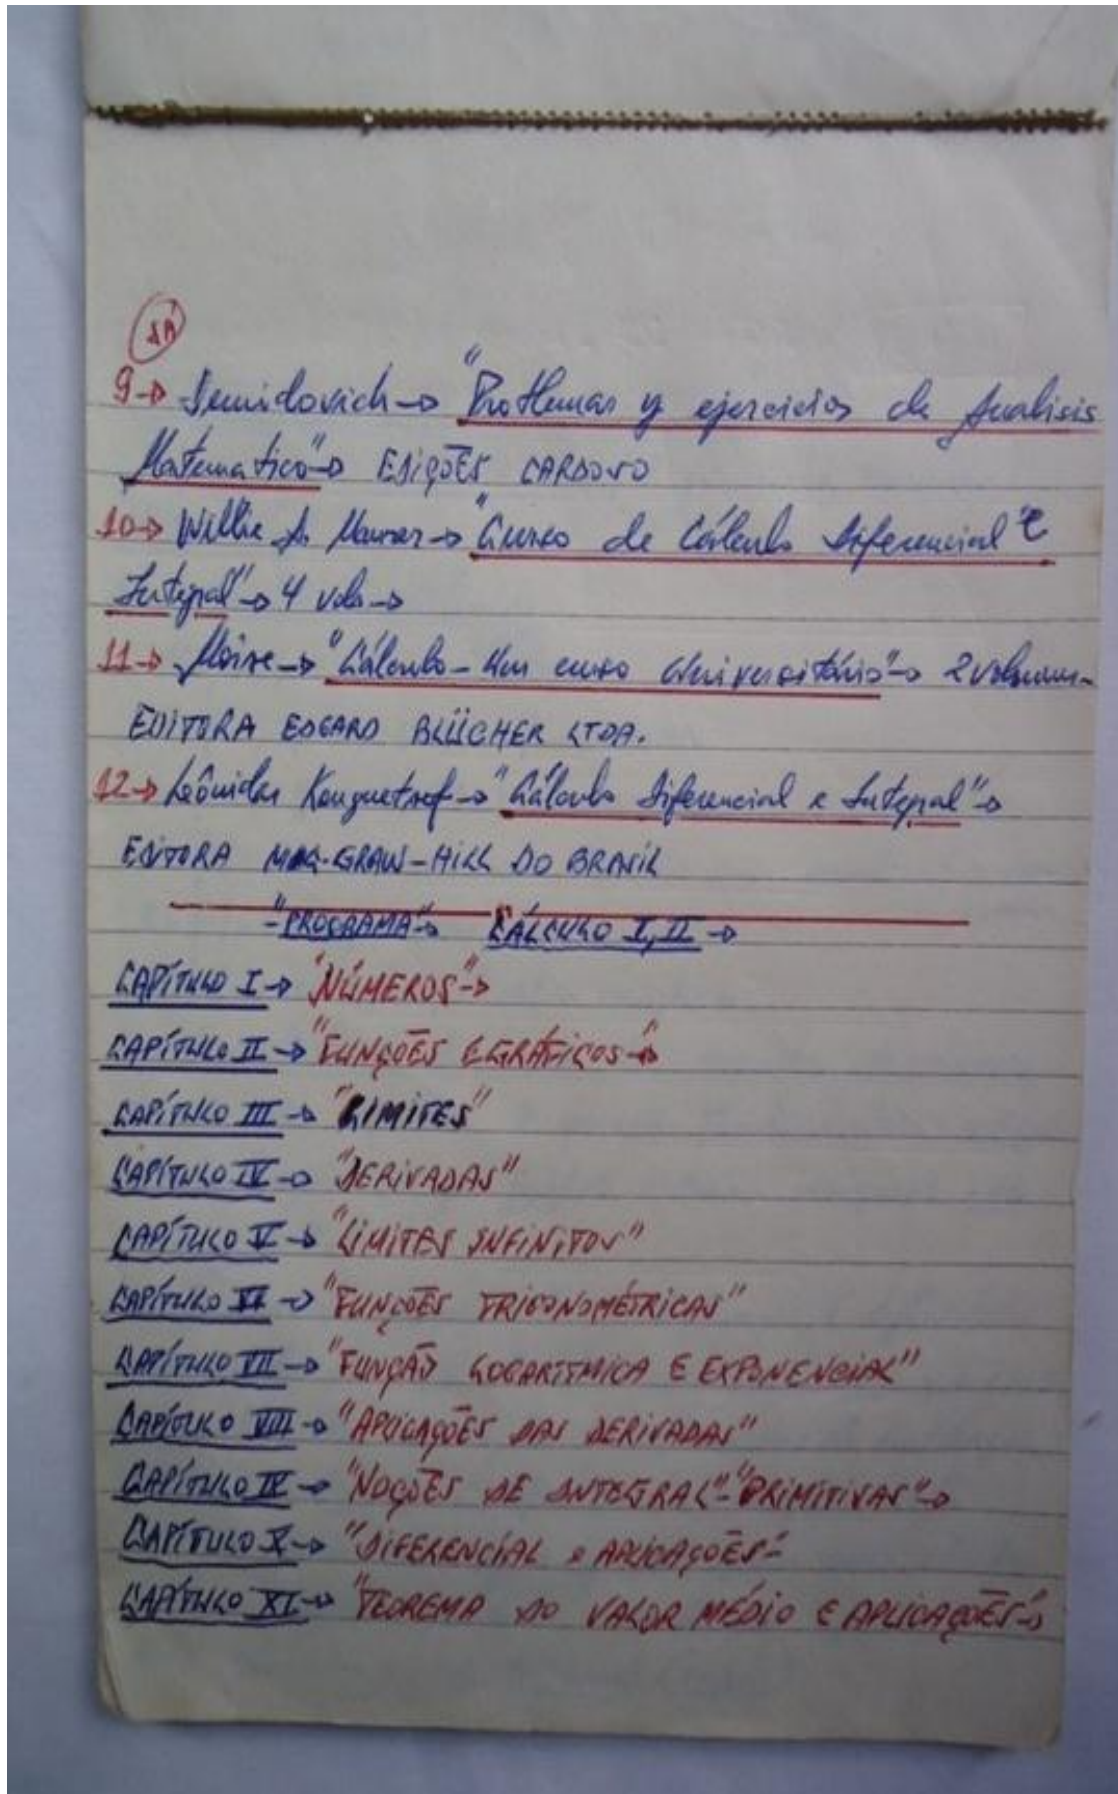 1A
9→ Demidovich→ "Problemas y ejercicios de Analisis
Matematico"→ EDIÇÕES CARDOSO
10→ Willie A. Maurer→ "Curso de Cálculo Diferencial e
Integral"→ 4 vols→
11→ Moise→ "Cálculo-Um curso Universitário"→ 2 volumes-
EDITORA EDGARD BLÜCHER LTDA.
12→ Leônidas Konguetsof→ "Cálculo Diferencial e Integral"→
EDITORA MAC-GRAW-HILL DO BRASIL
-"PROGRAMA"→ CÁLCULO I, II→
CAPÍTULO I→ "NÚMEROS"→
CAPÍTULO II→ "FUNÇÕES E GRÁFICOS"→
CAPÍTULO III→ "LIMITES"
CAPÍTULO IV→ "DERIVADAS"
CAPÍTULO V→ "LIMITES INFINITOS"
CAPÍTULO VI→ "FUNÇÕES TRIGONOMÉTRICAS"
CAPÍTULO VII→ "FUNÇÃO LOGARITMICA E EXPONENCIAL"
CAPÍTULO VIII→ "APLICAÇÕES DAS DERIVADAS"
CAPÍTULO IX→ "NOÇÕES DE INTEGRAL"-"PRIMITIVAS"→
CAPÍTULO X→ "DIFERENCIAL e APLICAÇÕES"
CAPÍTULO XI→ "TEOREMA DO VALOR MÉDIO E APLICAÇÕES"→